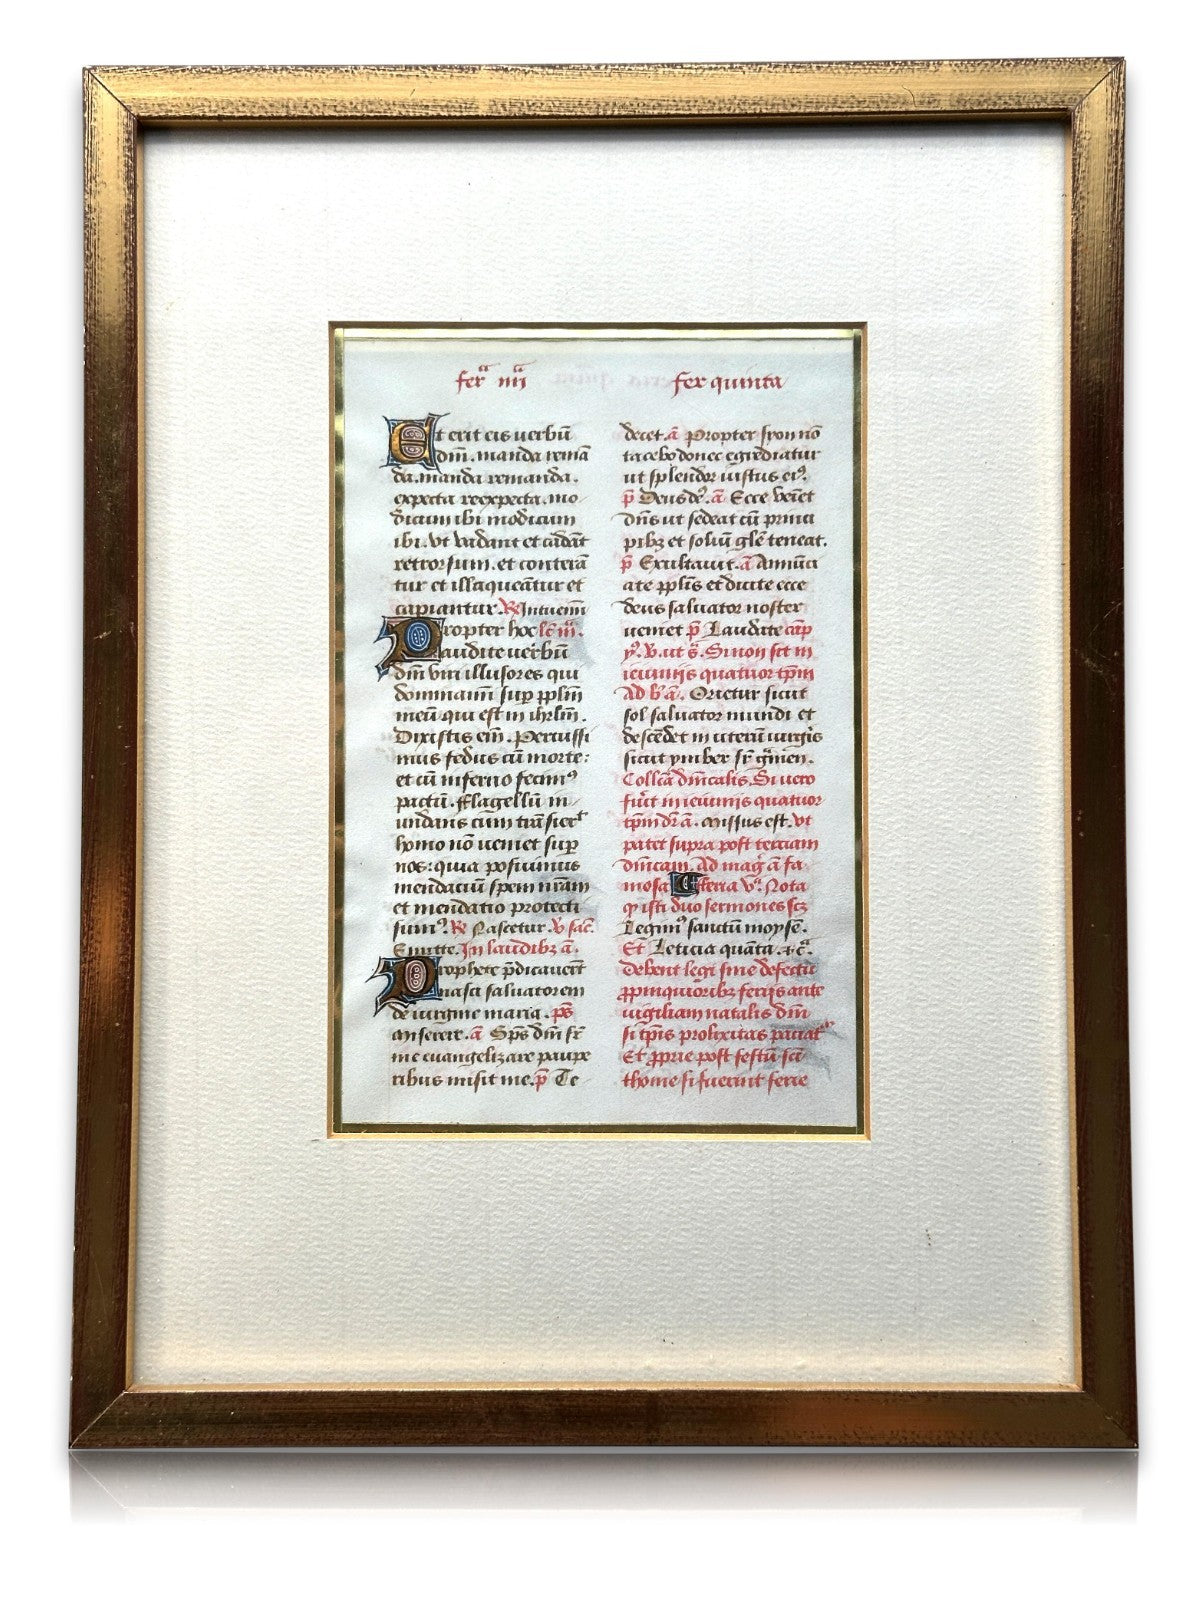 ferᷓ iiiiᷓ
Et erit eis uerbū
dn̄i. manda reman
da. manda remanda.
expecta reexpecta. mo
dicum ibi modicum
ibi. vt vadant et cadāt
retrorsum. et conterā
tur et illaqueātur et
capiantur. R̶ Intuemī
Propter hoc lc̄ iii.
audite uerbū
dn̄i viri illusores qui
dominamī sup̄ ppl̄m
meū qui est in ihrl̄m.
Dixistis em̄. Percussi
mus fedus cū morte:
et cū inferno fecimꝰ
pactū. Flagellū in
undans cum trāsierᵗ
homo nō ueniet sup̄
nos: quia posuimus
mendaciū spem nr̄am
et mendacio protecti
sumꝰ. R̶ Nascetur. v̄ sac̄.
Emitte. In laudibꝫ a̅.
Prophete p̄dicauerūt
nasci saluatorem
de uirgine maria. ps̄
Miserere. a̅ Sp̄s dn̄i sr̄
me euangelizare paupe
ribus misit me. p̄ Te
fer quinta
decet. a̅ Propter syon nō
tacebo donec egrediatur
ut splendor iustus eiꝰ.
p̄ Deus dꝰ. a̅ Ecce veīet
dn̄s ut sedeat cū princi
pibꝫ et soliū gl̄e teneat.
p̄ Exultauit. a̅ Annūci
ate ppl̄is et dicite ecce
deus saluator noster
ueniet p̄ Laudate cap̄
. v̄. ut s̄. Si non sit in
ieiuniis quatuor tp̄m
Ad b̄ a̅. Orietur sicut
sol saluator mundi et
descēdet in uterū uirgīs
sicut ymber sr̄ gᷓmen.
Collcā dn̄icalis. Si uero
fūit in ieiuniis quatuor
tp̄m dr̄ a̅. Missus est. vt
patet supra post terciam
dn̄icam. Ad mag̅ a̅ fa
mosa Et terra vᷓ. Nota
qꝫ isti duo sermones scꝫ
Legimꝰ sanctū moysē.
Et Leticia quāta. ⁊cᷓ.
Debent legi sine defectu
ꝓpinquioribꝫ feriis ante
uigiliam natalis dn̄i
si tp̄is prolixitas paciatᵘʳ
Et ꝓprie post festū scī
thome si fuerint ferie